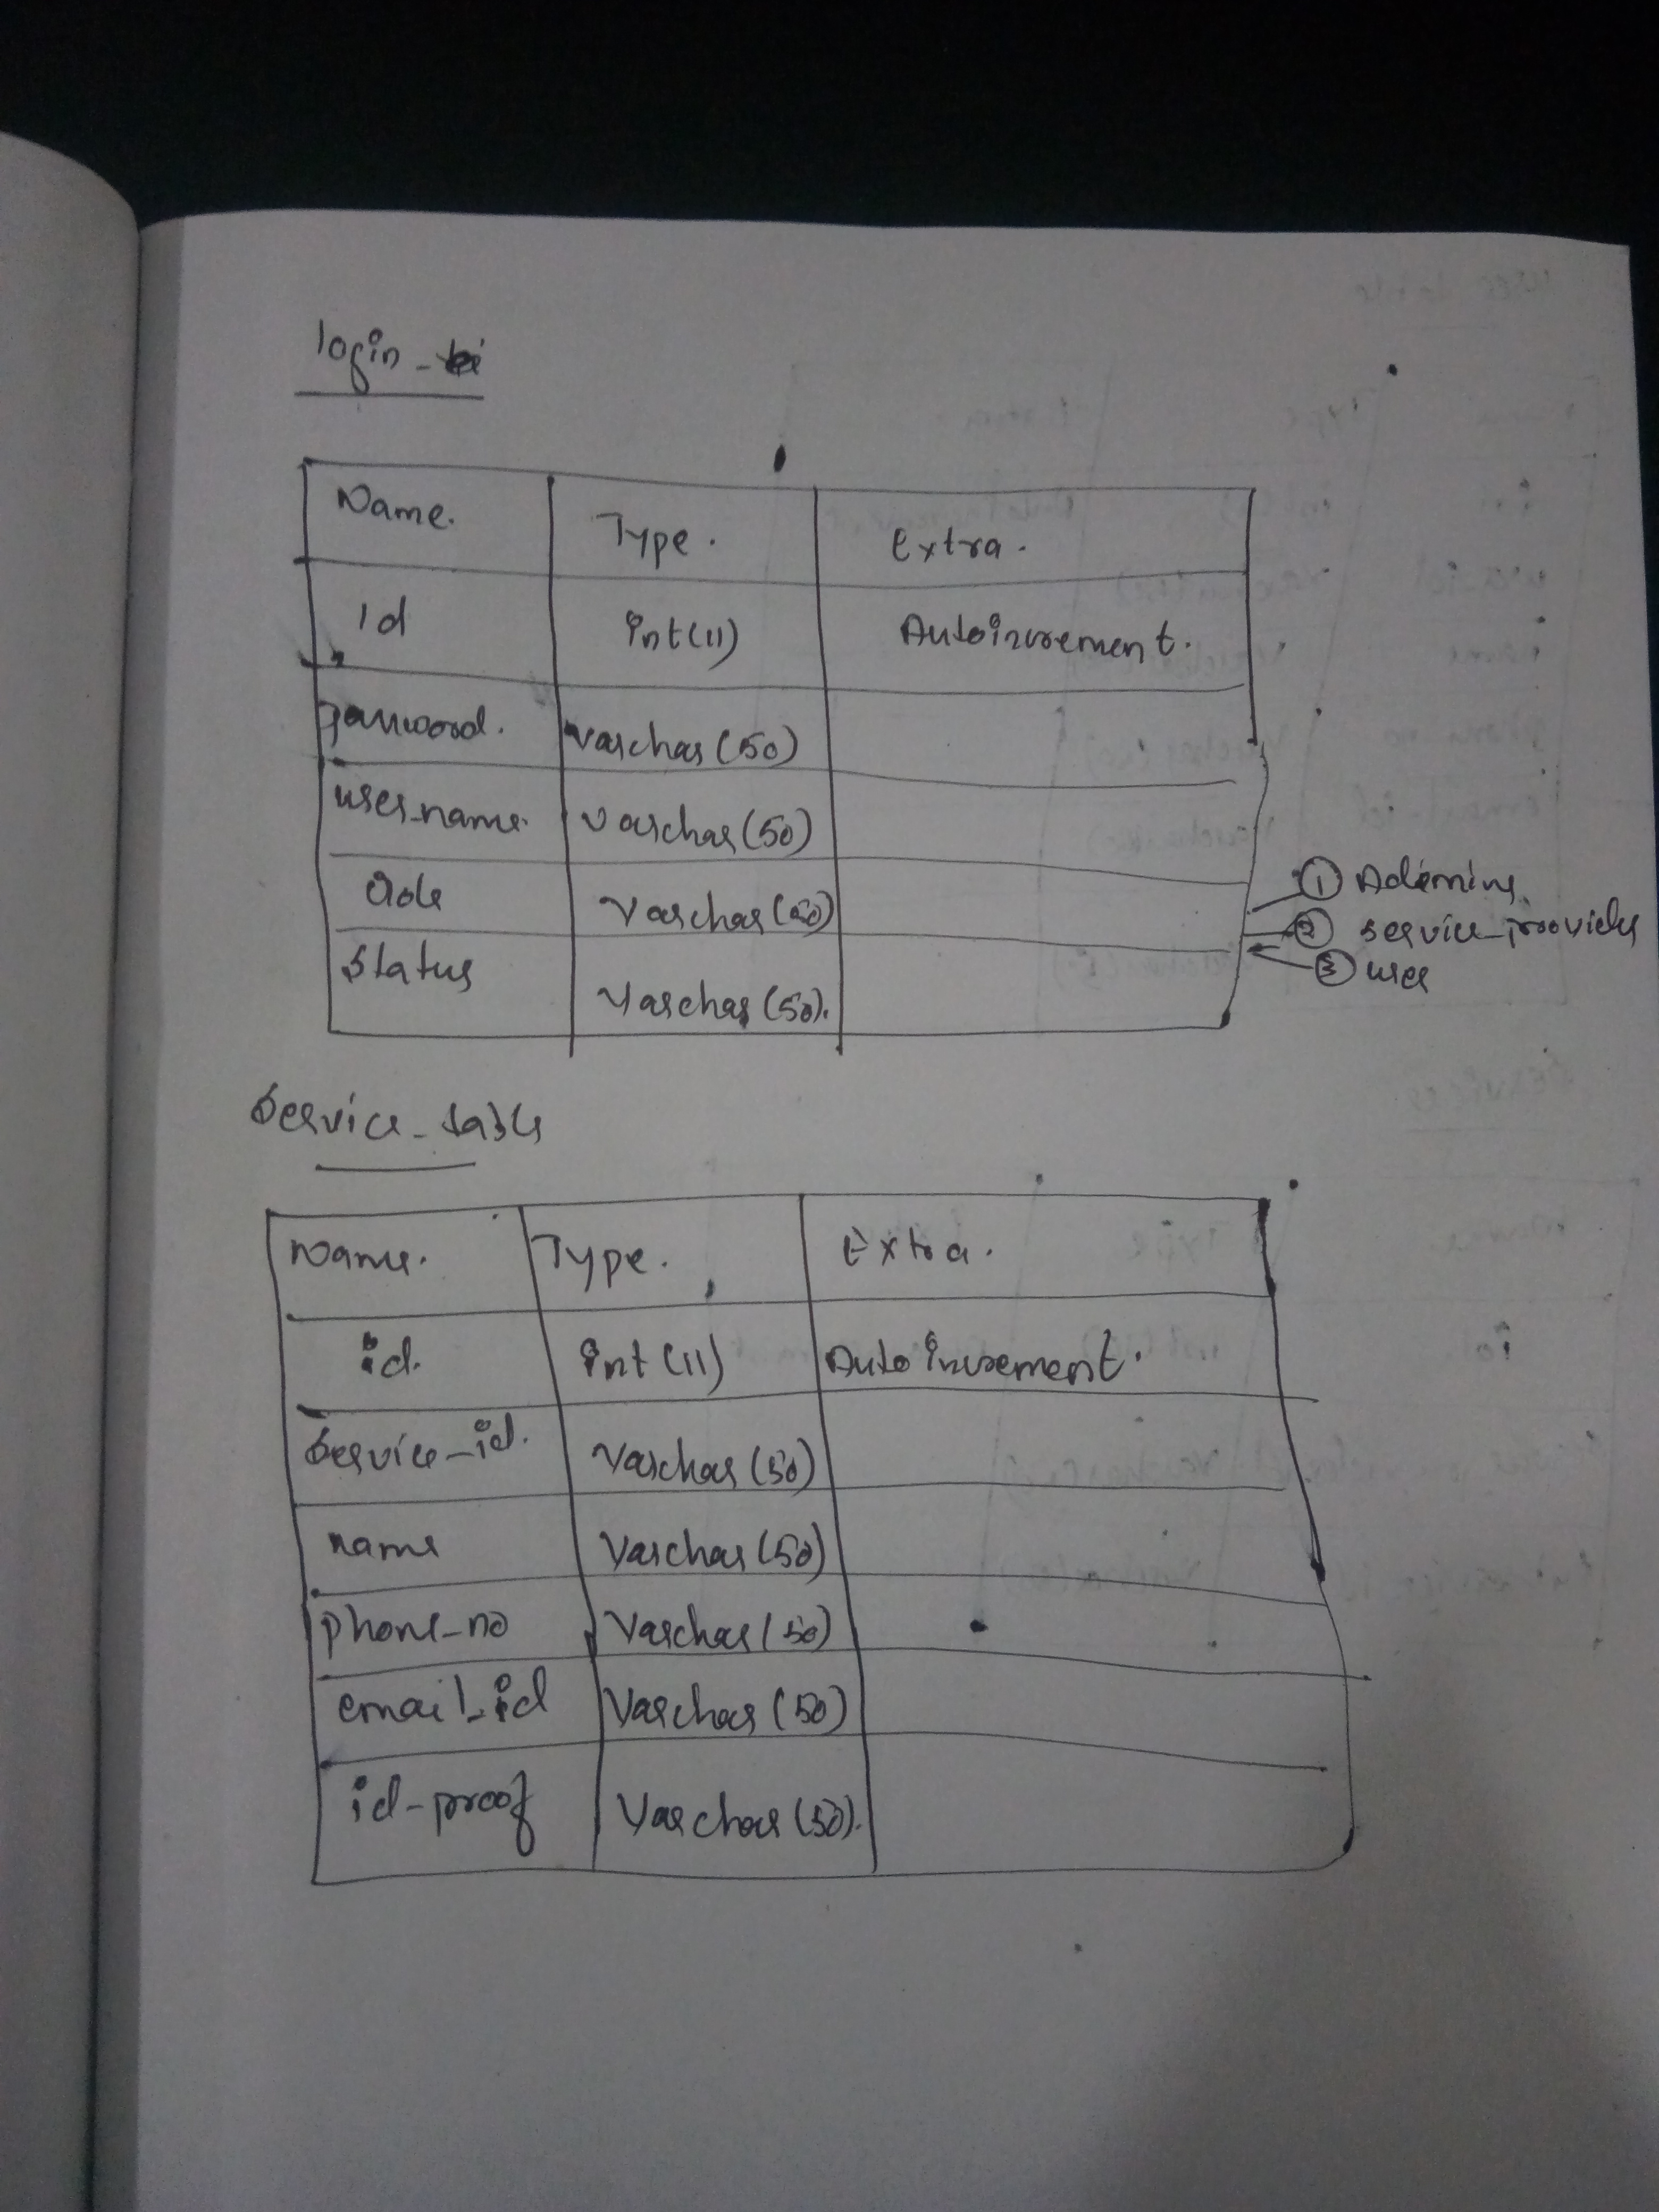 login_
Name. Type. Extra.
id int(11) Autoincrement.
password. varchar(50)
user_name. varchar(50)
role varchar(50)
① Admin
② service_provider
③ user
Status varchar(50).
Service_table
Name. Type. Extra.
id. int(11) Auto increment.
Service_id. varchar(50)
name varchar(50)
phone_no varchar(50)
email_id varchar(50)
id-proof varchar(50).